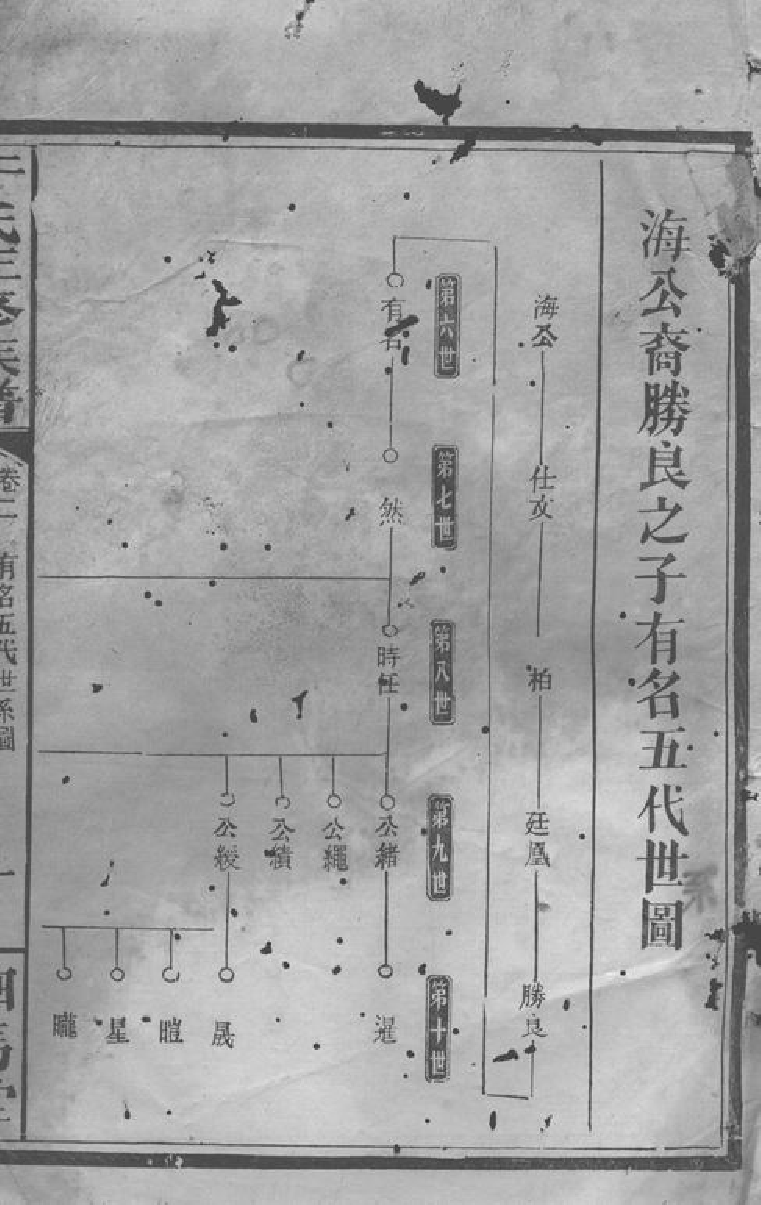 海公裔勝良之子有名五代世圖
系
海公
仕文
柏
廷鳳
勝良
第六世
第七世
第八世
第九世
第十世
有名
然
時任
公緒
暹
公繩
公績
公綬
晟
暟
星
曨
氏三修族譜
卷二
有名五代世系圖